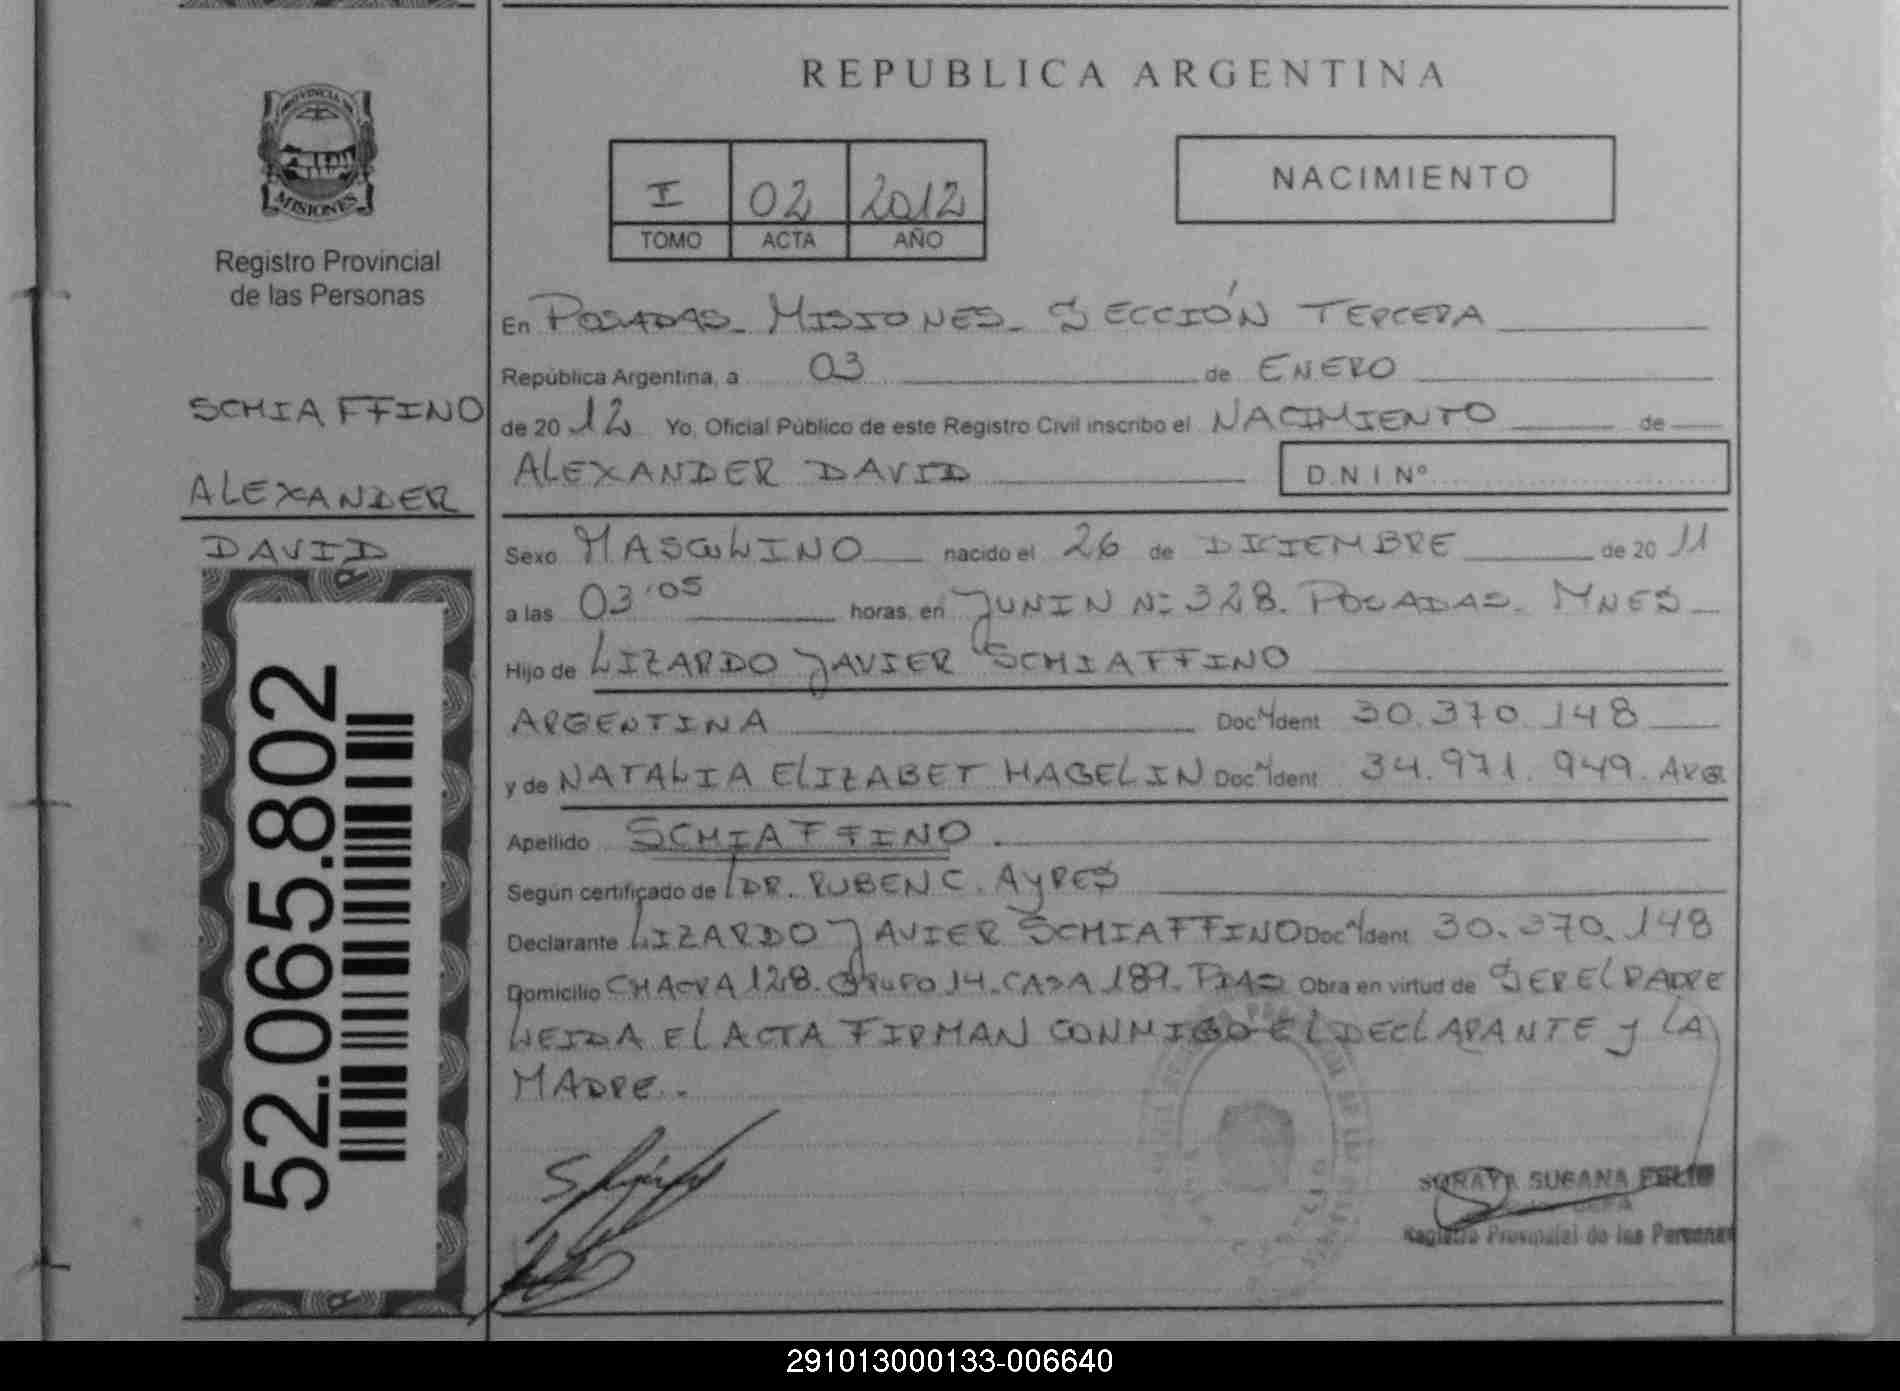 REPUBLICA ARGENTINA
PROVINCIA DE
MISIONES
Registro Provincial
de las Personas
SCHIAFFINO
ALEXANDER
DAVID
52.065.802
I 02 2012
TOMO ACTA AÑO
NACIMIENTO
En POSADAS - MISIONES - SECCIÓN TERCERA
República Argentina, a 03 de ENERO
de 2012 Yo, Oficial Público de este Registro Civil inscribo el NACIMIENTO de
ALEXANDER DAVID D.N.I Nº
Sexo MASCULINO nacido el 26 de DICIEMBRE de 2011
a las 03'05 horas, en JUNIN Nº 328. POSADAS. MNES
Hijo de LIZARDO JAVIER SCHIAFFINO
ARGENTINA Doc Ident 30.370.148
y de NATALIA ELIZABET HAGELIN Doc Ident 34.971.949. ARG.
Apellido SCHIAFFINO
Según certificado de DR. RUBEN C. AYRES
Declarante LIZARDO JAVIER SCHIAFFINO Doc Ident 30.370.148
Domicilio CHACRA 128. GRUPO 14. CASA 189. PDAS Obra en virtud de SER EL PADRE
LEIDA EL ACTA FIRMAN CONMIGO EL DECLARANTE y LA
MADRE.
SORAYA SUSANA
Registro Provincial de las Personas
291013000133-006640